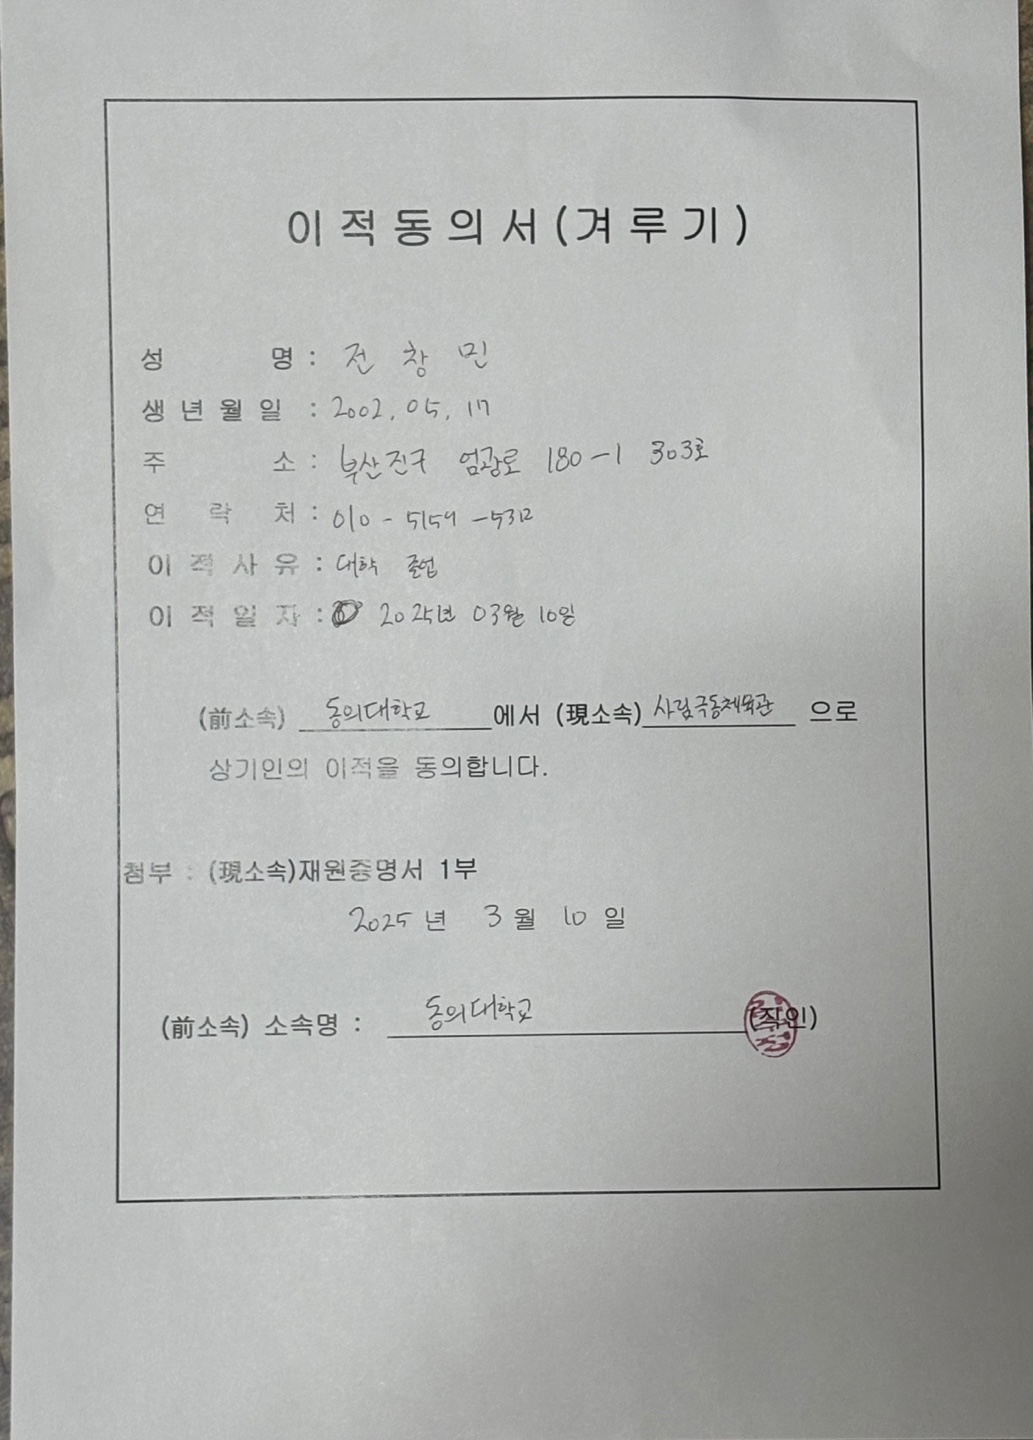 이적동의서(겨루기)
성 명 : 전 창 민
생년월일 : 2002. 05. 17
주 소 : 부산진구 엄광로 180-1 303호
연 락 처 : 010 - 5159 - 5312
이적사유 : 대학 졸업
이적일자 : 2025년 03월 10일
(前소속) 동의대학교 에서 (現소속) 사림극동체육관 으로
상기인의 이적을 동의합니다.
첨부 : (現소속)재원증명서 1부
2025 년 3 월 10 일
(前소속) 소속명 : 동의대학교 (직인)